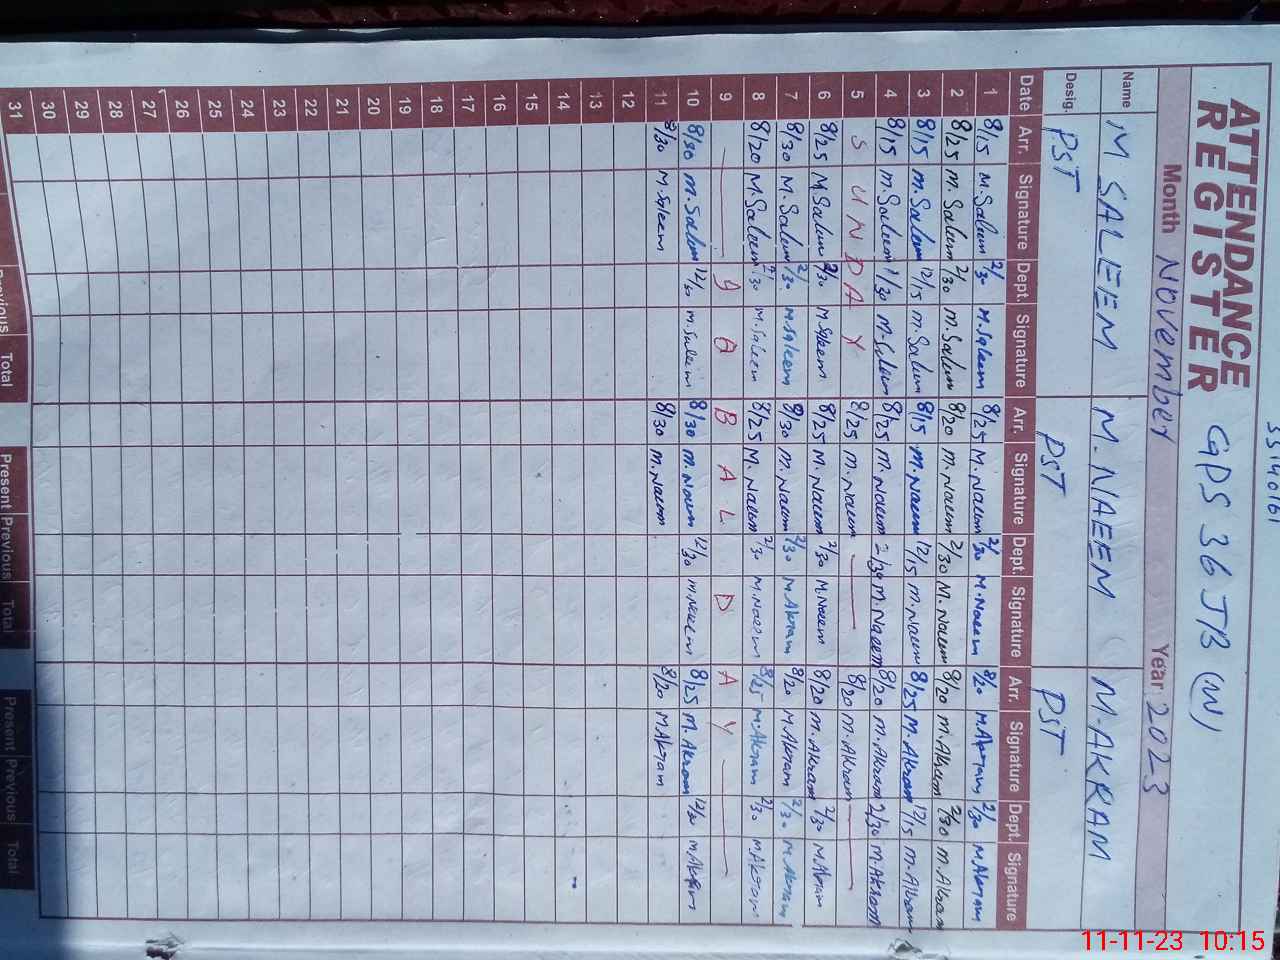 ATTENDANCE
REGISTER GPS 36 JB (W)
Month November Year 2023
Name M SALEEM M. NAEEM M. AKRAM
Desig. PST PST PST
Date Arr. Signature Dept. Signature Arr. Signature Dept. Signature Arr. Signature Dept. Signature
1 8/15 M. Saleem 2/30 M. Saleem 8/25 M. Naeem 2/30 M. Naeem 8/20 M. Akram 2/30 M. Akram
2 8/25 M. Saleem 2/30 M. Saleem 8/20 M. Naeem 2/30 M. Naeem 8/20 M. Akram 2/30 M. Akram
3 8/15 M. Saleem 12/15 M. Saleem 8/15 M. Naeem 12/15 M. Naeem 8/25 M. Akram 12/15 M. Akram
4 8/15 M. Saleem 1/30 M. Saleem 8/25 M. Naeem 2/30 M. Naeem 8/20 M. Akram 2/30 M. Akram
5 SUNDAY 8/25 M. Naeem 8/20 M. Akram
6 8/25 M. Saleem 2/30 M. Saleem 8/25 M. Naeem 2/30 M. Naeem 8/20 M. Akram 2/30 M. Akram
7 8/30 M. Saleem 2/30 M. Saleem 8/30 M. Naeem 2/30 M. Akram 8/20 M. Akram 2/30 M. Akram
8 8/20 M. Saleem 2/30 M. Saleem 8/25 M. Naeem 2/30 M. Naeem 8/25 M. Akram 2/30 M. Akram
9 IQBAL DAY
10 8/30 M. Saleem 12/30 M. Saleem 8/30 M. Naeem 12/30 M. Naeem 8/25 M. Akram 12/30 M. Akram
11 8/30 M. Saleem 8/30 M. Naeem 8/20 M. Akram
12
13
14
15
16
17
18
19
20
21
22
23
24
25
26
27
28
29
30
31
Previous Total Present Previous Total Present Previous Total
11-11-23 10:15